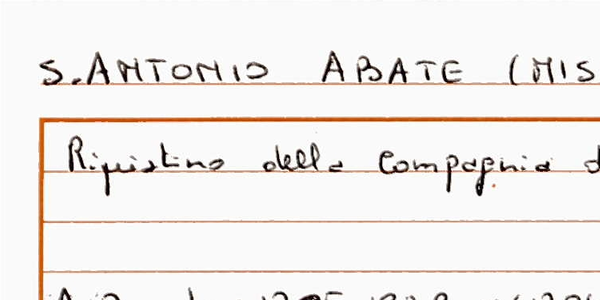 S. ANTONIO ABATE (MIS
Ripristino della Compagnia d